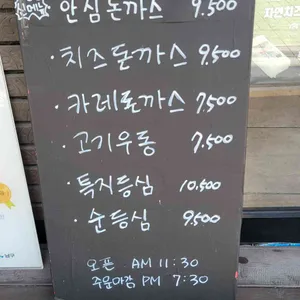 안심돈까스 9.500
· 치즈돈까스 9.500
· 카레돈까스 7.500
· 고기우동 7.500
· 특지등심 10.500
· 순등심 9.500
오픈 AM 11:30
주문마감 PM 7:30
자연치즈